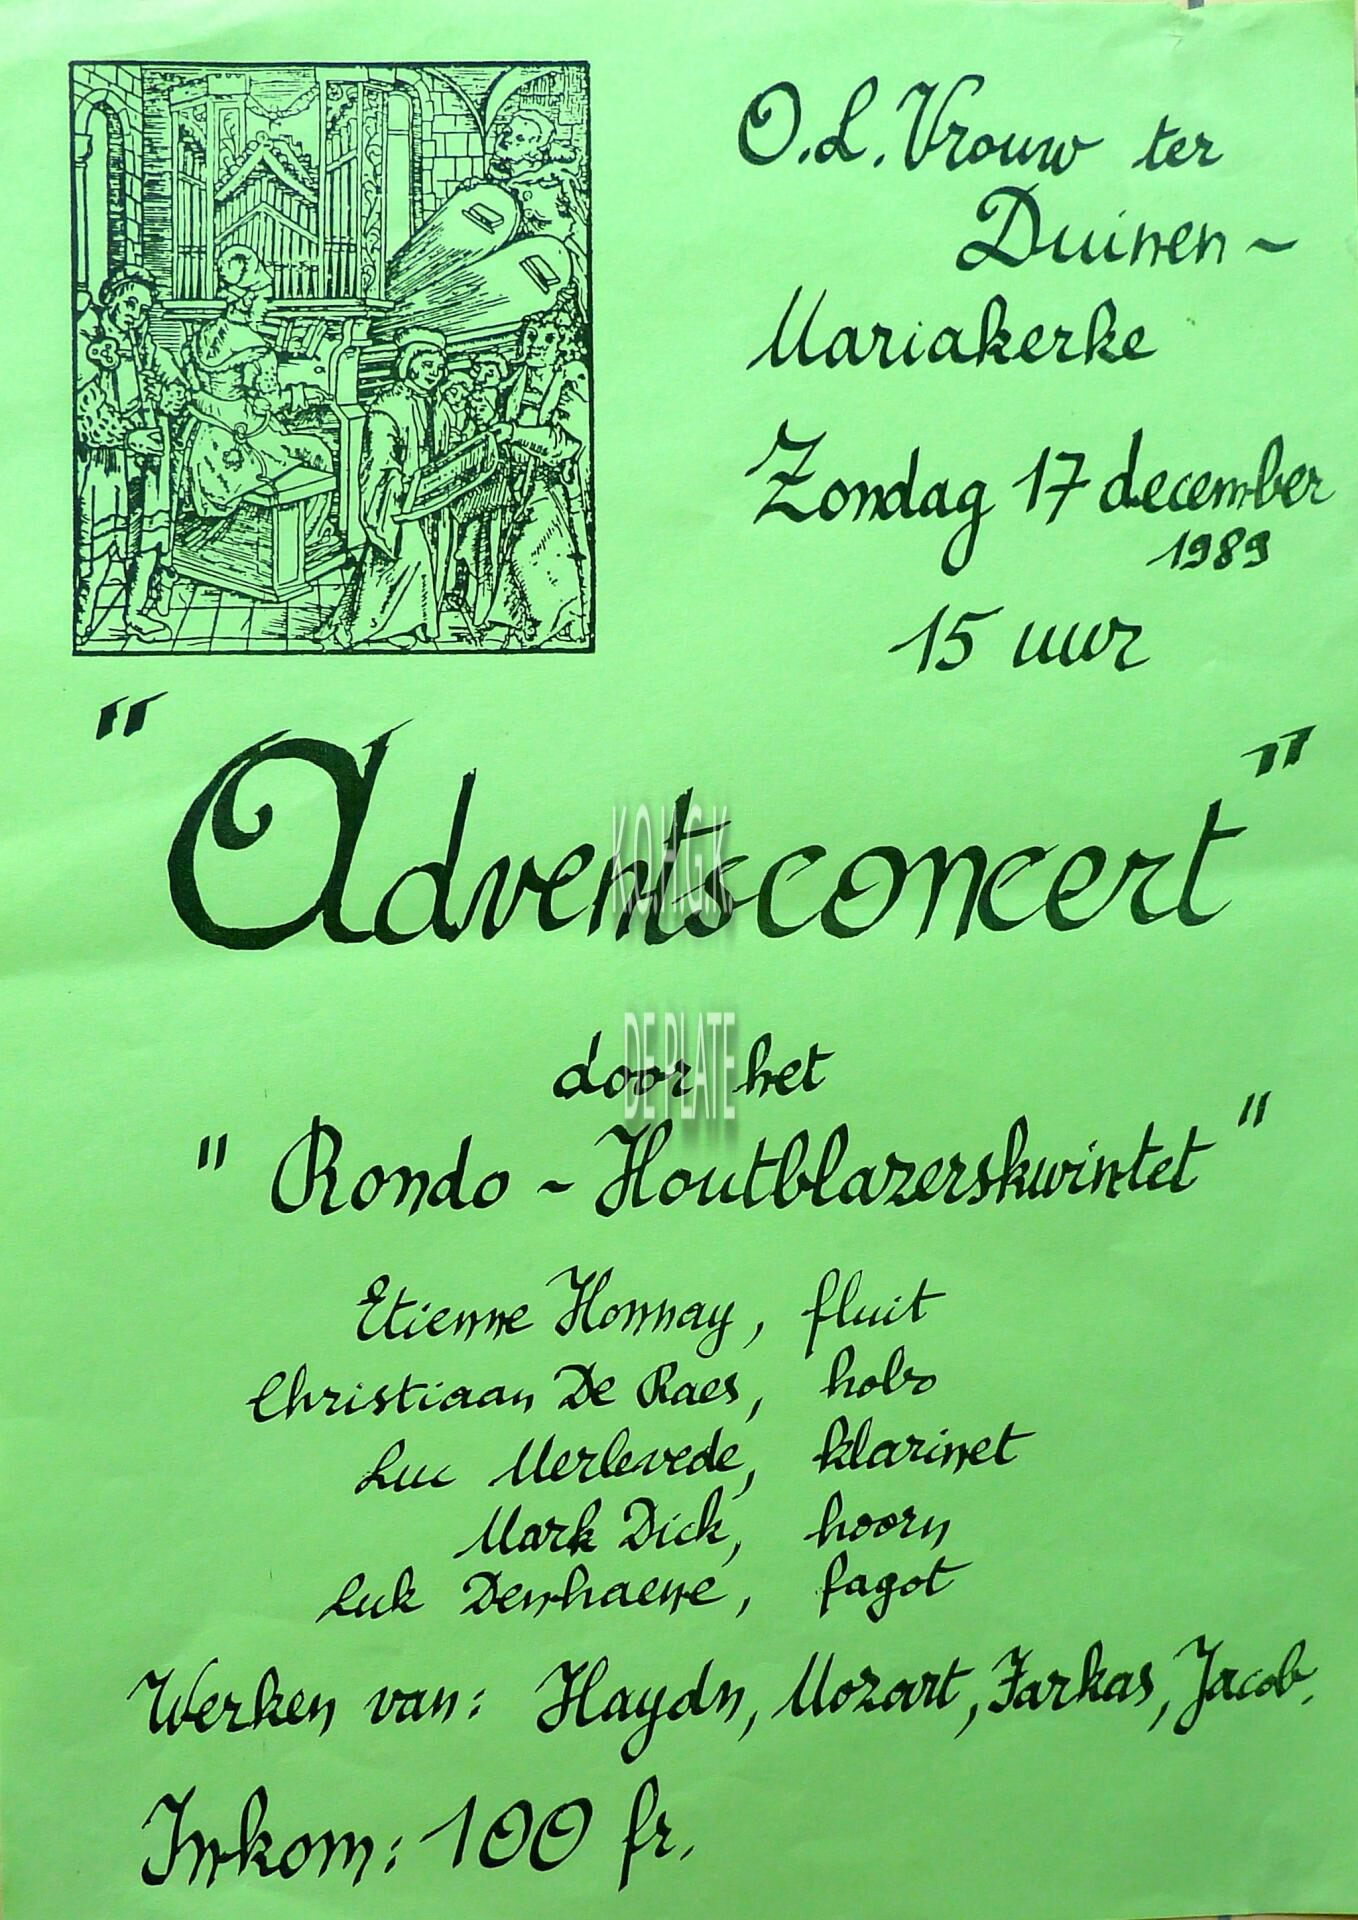 O.L. Vrouw ter
Duinen -
Mariakerke
Zondag 17 december
1989
15 uur
"Adventsconcert"
K.O.H.G.K.
DE PLATE
door het
"Rondo - Houtblazerskwintet"
Etienne Honnay, fluit
Christiaan De Raes, hobo
Luc Merlevede, klarinet
Mark Dick, hoorn
Luk Denhaene, fagot
Werken van: Haydn, Mozart, Farkas, Jacob.
Inkom: 100 fr.